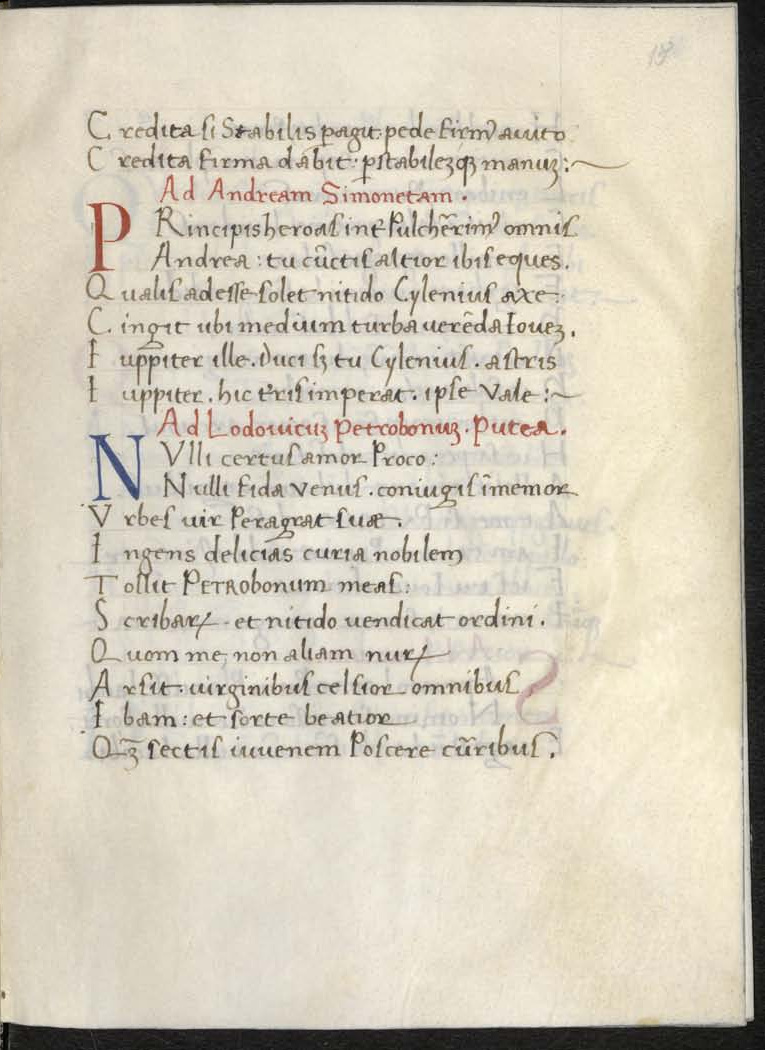 18
Credita si Stabilis ꝑagit. pede firmꝰ auito
Credita firma dabit. p̄stabilezqꝫ manuꝫ :~
Ad Andream Simonetam .
PRincipis heroas int̄ Pulcherrimꝰ omnis
Andrea : tu cūctis altior ibis eques .
Qualis adesse solet nitido Cylenius axe :
Cingit ubi medium turba uerēda Ioueꝫ .
Iuppiter ille . Duci sꝫ tu Cylenius . astris
Iuppiter . hic t̄ris imperat . ipse Vale :~
Ad Lodouicuꝫ Petrobonuꝫ . Putea .
NVlli certus amor Proco :
Nulli fida venus . coniugis īmemor
Vrbes uir Peragrat suæ .
Ingens delicias curia nobilem
Tollit PETROBONUM meas :
Scribaꝝ . et nitido vendicat ordini .
Quom me, non aliam nuꝝ
Arsit . uirginibus celsior omnibus
Ibam : et sorte beatior
Qꝫ̄ sectis iuuenem Poscere cūribus .